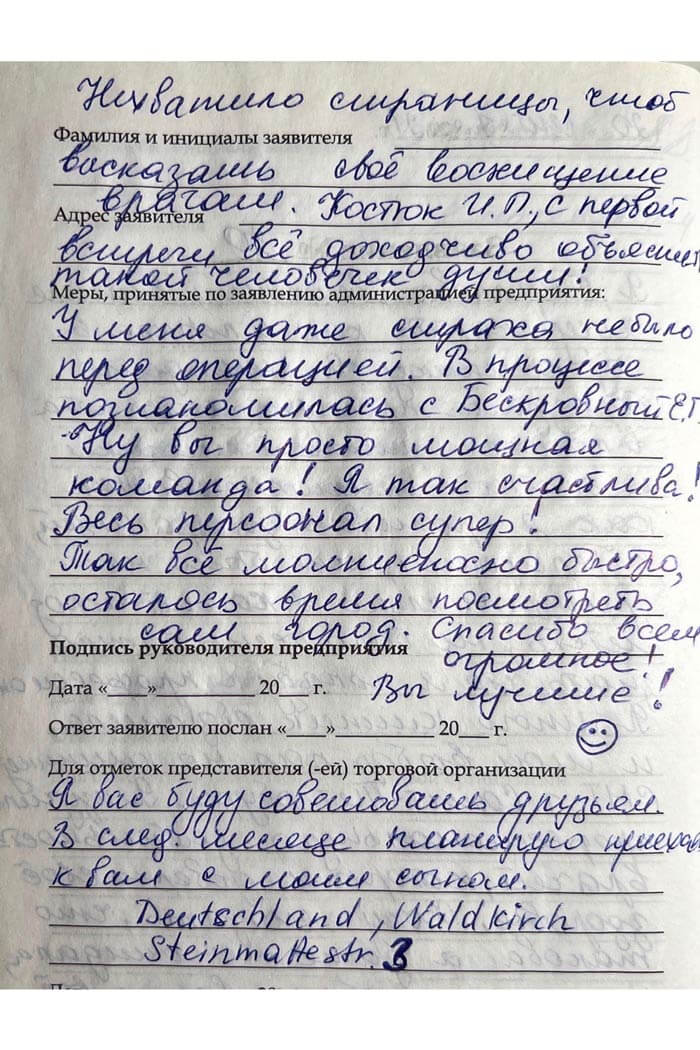 Нехватило страницы, чтоб
Фамилия и инициалы заявителя
восказать своё восхищение
врагам. Костюк И.П., с первой
Адрес заявителя
встречи всё доходчиво объяснил
такой человечек души!
Меры, принятые по заявлению администрацией предприятия:
У меня даже страха не было
перед операцией. В процессе
познакомилась с Бескровный Е.Г.
Ну вы просто мощная
команда! Я так счастлива!
Весь персоонал супер!
Так всё молниеносно быстро,
осталось время посмотреть
сам город. Спасибо всем
Подпись руководителя предприятия
огромное!
Дата «___»__________ 20___ г. Вы лучшие!
Ответ заявителю послан «___»__________ 20___ г.
Для отметок представителя (-ей) торговой организации
Я вас буду советовать друзьям.
В след. месяце планирую приехать
к вам с моим сыном.
Deutschland, Waldkirch
Steinmattestr. 3